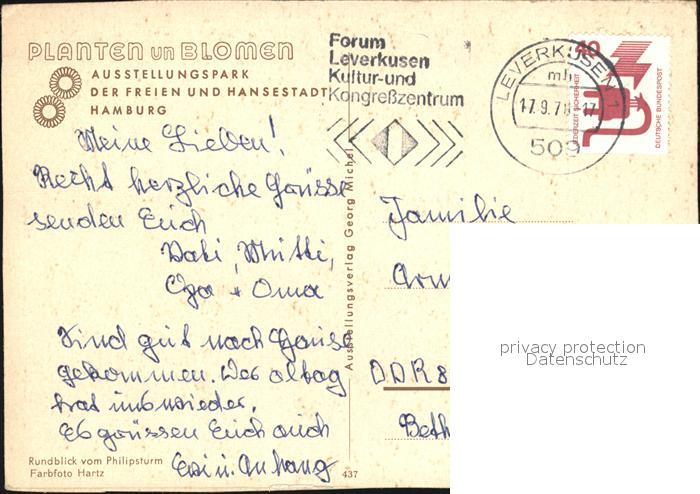 PLANTEN un BLOMEN
AUSSTELLUNGSPARK
DER FREIEN UND HANSESTADT
HAMBURG
Forum
Leverkusen
Kultur-und
Kongreßzentrum
LEVERKUSEN 1
mh
17.9.7
17
509
40
JEDERZEIT SICHERHEIT
DEUTSCHE BUNDESPOST
Meine Lieben!
Recht herzliche Grüsse
senden Euch
Vati, Mutti,
Opa + Oma
Sind gut nach Hause
gekommen. Der alltag
hat uns wieder.
Es grüssen Euch auch
u. Anhang
Rundblick vom Philipsturm
Farbfoto Hartz
437
Ausstellungsverlag Georg Michel
Familie
DDR 8
Beth
privacy protection
Datenschutz